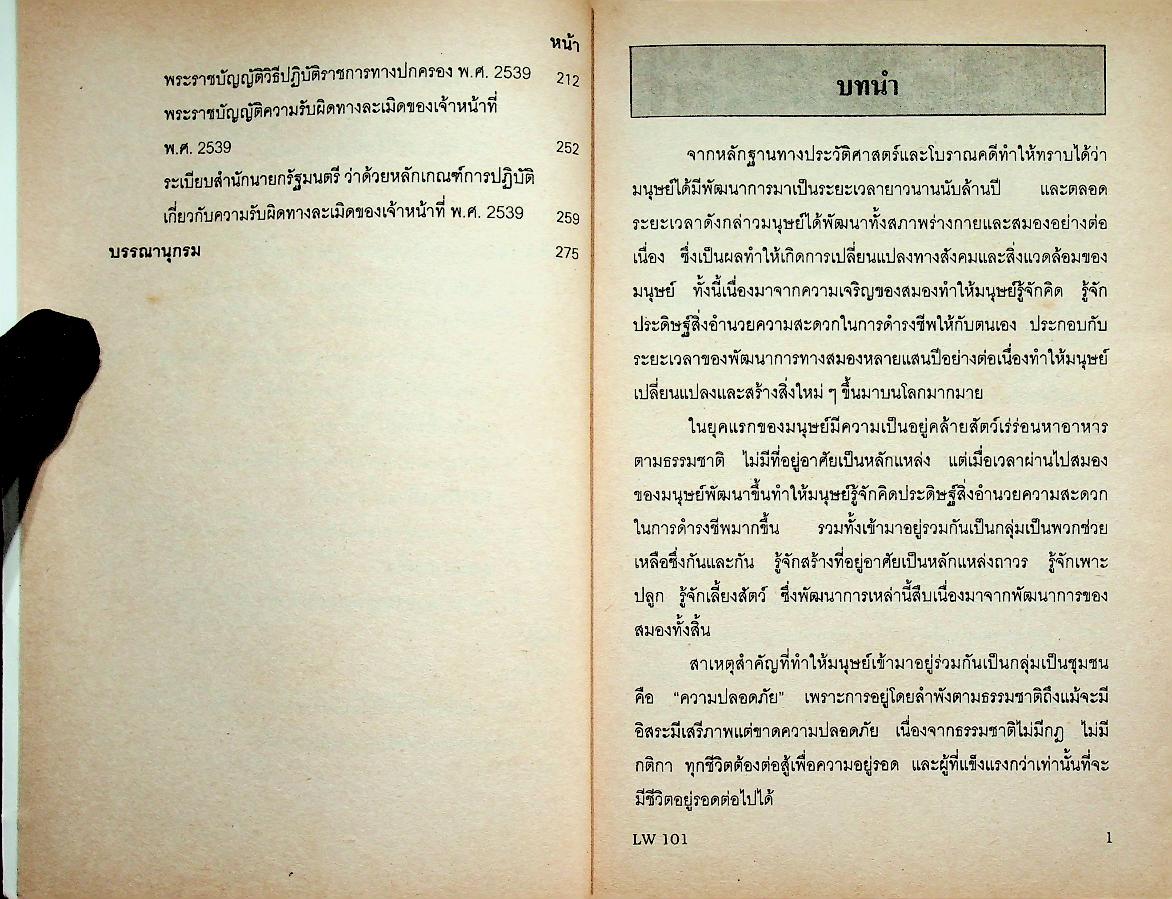 หน้า
พระราชบัญญัติวิธีปฏิบัติราชการทางปกครอง พ.ศ. 2539 212
พระราชบัญญัติความรับผิดทางละเมิดของเจ้าหน้าที่
พ.ศ. 2539 252
ระเบียบสำนักนายกรัฐมนตรี ว่าด้วยหลักเกณฑ์การปฏิบัติ
เกี่ยวกับความรับผิดทางละเมิดของเจ้าหน้าที่ พ.ศ. 2539 259
บรรณานุกรม 275
บทนำ
จากหลักฐานทางประวัติศาสตร์และโบราณคดีทำให้ทราบได้ว่า
มนุษย์ได้มีพัฒนาการมาเป็นระยะเวลายาวนานนับล้านปี และตลอด
ระยะเวลาดังกล่าวมนุษย์ได้พัฒนาทั้งสภาพร่างกายและสมองอย่างต่อ
เนื่อง ซึ่งเป็นผลทำให้เกิดการเปลี่ยนแปลงทางสังคมและสิ่งแวดล้อมของ
มนุษย์ ทั้งนี้เนื่องมาจากความเจริญของสมองทำให้มนุษย์รู้จักคิด รู้จัก
ประดิษฐ์สิ่งอำนวยความสะดวกในการดำรงชีพให้กับตนเอง ประกอบกับ
ระยะเวลาของพัฒนาการทางสมองหลายแสนปีอย่างต่อเนื่องทำให้มนุษย์
เปลี่ยนแปลงและสร้างสิ่งใหม่ ๆ ขึ้นมาบนโลกมากมาย
ในยุคแรกของมนุษย์มีความเป็นอยู่คล้ายสัตว์เร่ร่อนหาอาหาร
ตามธรรมชาติ ไม่มีที่อยู่อาศัยเป็นหลักแหล่ง แต่เมื่อเวลาผ่านไปสมอง
ของมนุษย์พัฒนาขึ้นทำให้มนุษย์รู้จักคิดประดิษฐ์สิ่งอำนวยความสะดวก
ในการดำรงชีพมากขึ้น รวมทั้งเข้ามาอยู่รวมกันเป็นกลุ่มเป็นพวกช่วย
เหลือซึ่งกันและกัน รู้จักสร้างที่อยู่อาศัยเป็นหลักแหล่งถาวร รู้จักเพาะ
ปลูก รู้จักเลี้ยงสัตว์ ซึ่งพัฒนาการเหล่านี้สืบเนื่องมาจากพัฒนาการของ
สมองทั้งสิ้น
สาเหตุสำคัญที่ทำให้มนุษย์เข้ามาอยู่ร่วมกันเป็นกลุ่มเป็นชุมชน
คือ “ความปลอดภัย” เพราะการอยู่โดยลำพังตามธรรมชาติถึงแม้จะมี
อิสระมีเสรีภาพแต่ขาดความปลอดภัย เนื่องจากธรรมชาติไม่มีกฎ ไม่มี
กติกา ทุกชีวิตต้องต่อสู้เพื่อความอยู่รอด และผู้ที่แข็งแรงกว่าเท่านั้นที่จะ
มีชีวิตอยู่รอดต่อไปได้
LW 101 1